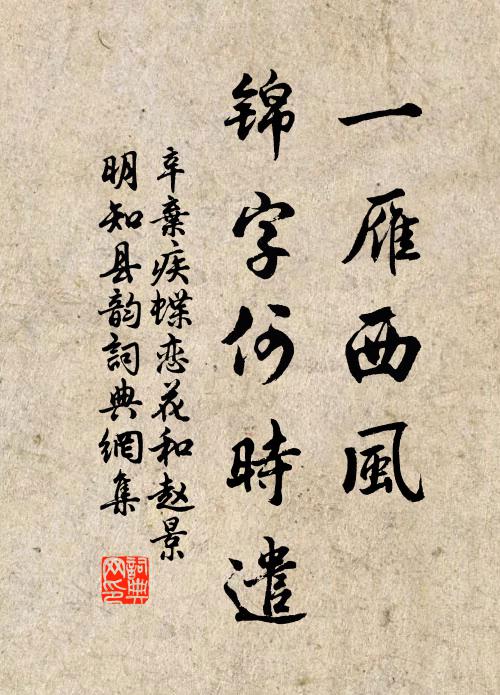 一雁西風
锦字何時遣
辛棄疾蝶恋花和赵景
明知县韵詞典網集
詞典
网印